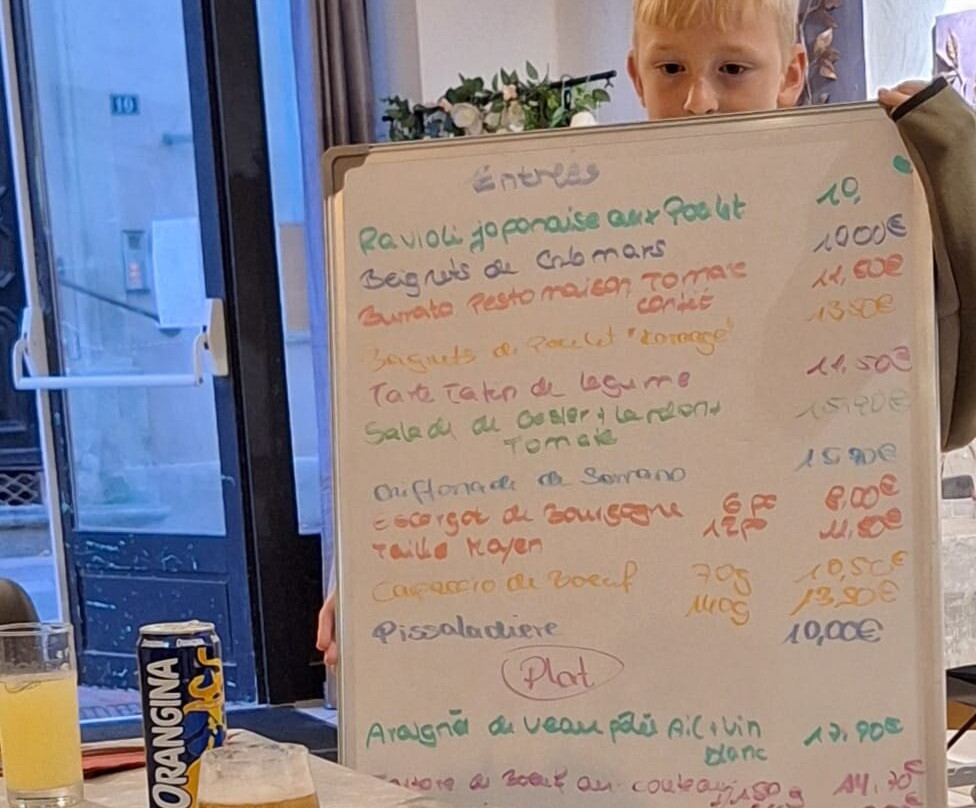 10
Entrées
Ravioli japonaise aux Poulet 10,
Beignets de Calamars 10,00€
Burrata Pesto maison Tomate 11,50€
confit
Beignets de Poulet "Karaage" 13,50€
Tarte Tatin de legume 11,50€
Salade de Gesier + Lardon + 15,90€
Tomate
de Serrano 15,90€
Escargot de Bourgogne 6 pc 8,00€
Taille Moyen 12 pc 11,50€
Carpaccio de Boeuf 70g 10,50€
140g 13,90€
Pissaladiere 10,00€
Plat
Araigné de veau Ail + Vin 17,90€
blanc
de Boeuf au couteau 150 g 14,70€
ORANGINA